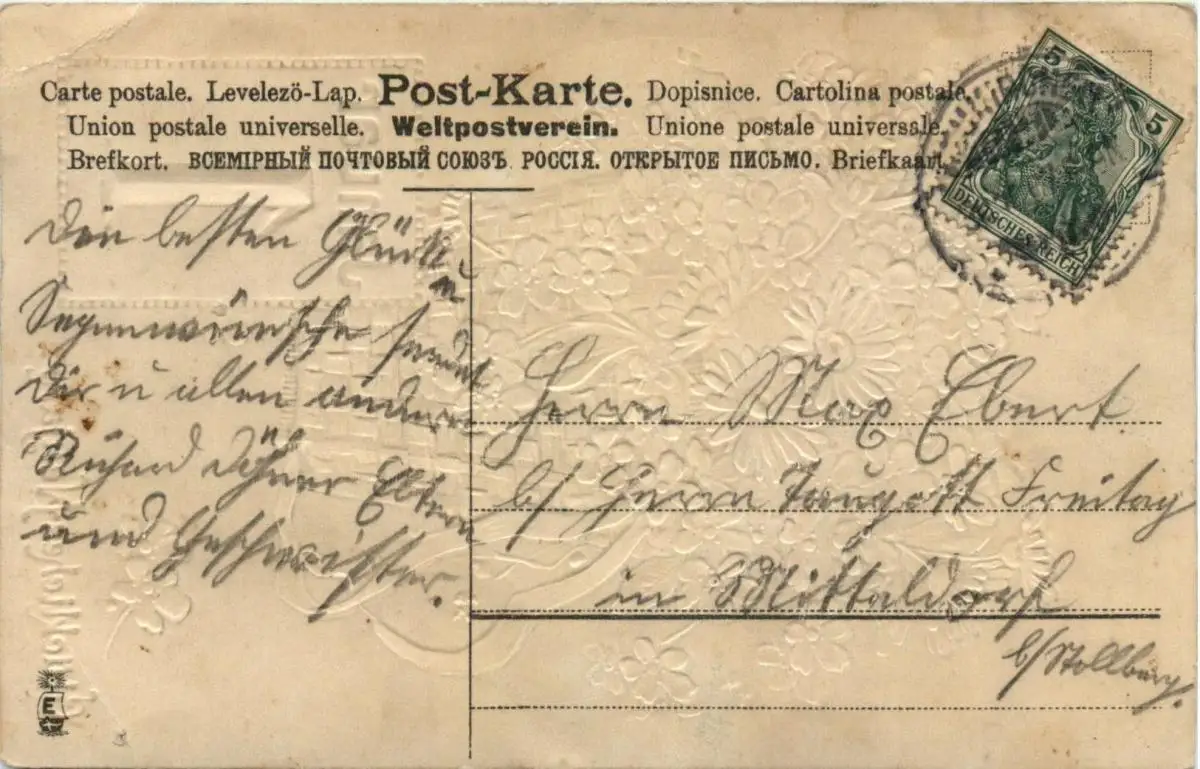 Carte postale. Levelezö-Lap. Post-Karte. Dopisnice. Cartolina postale.
Union postale universelle. Weltpostverein. Unione postale universale.
Brefkort. ВСЕМІРНЫЙ ПОЧТОВЫЙ СОЮЗЪ. РОССІЯ. ОТКРЫТОЕ ПИСЬМО. Briefkaart.
5
5
DEUTSCHES REICH
Die besten Glück
u
Segenwünsche sendet
Dir u allen andern
Richard Eltern
und Geschwister.
Herrn Max Ebert
b/ Herrn Freitag
in Mitteldorf
b/Stollberg.
E